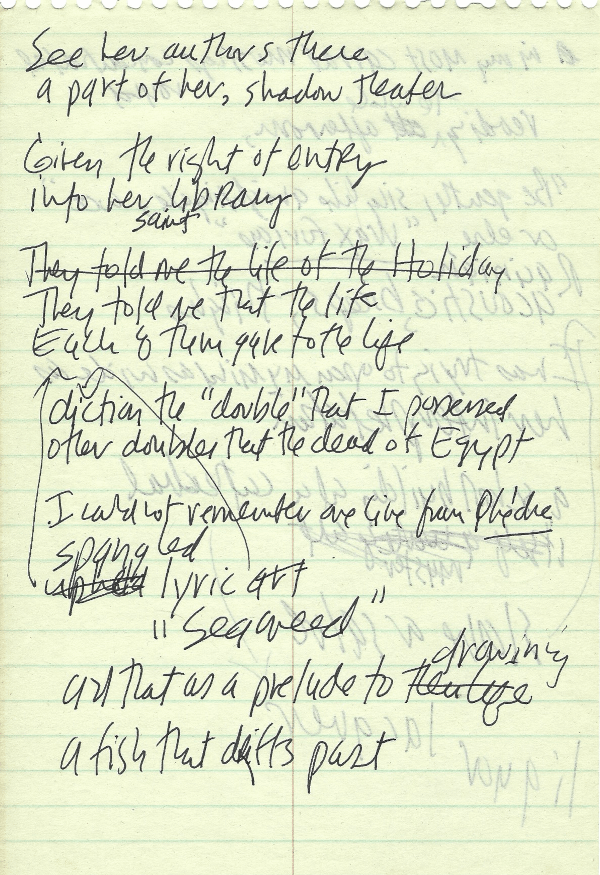 See her authors there
a part of her, shadow theater
Given the right of entry
into her library
saint
They told me the life of the Holiday
They told me that the life
Each of them gave to the life
diction the "double" that I possessed
other doubles that the dead of Egypt
I could not remember one line from Phèdre
spangled
lyric art
"Seaweed"
drawing
art that as a prelude to
a fish that drifts past